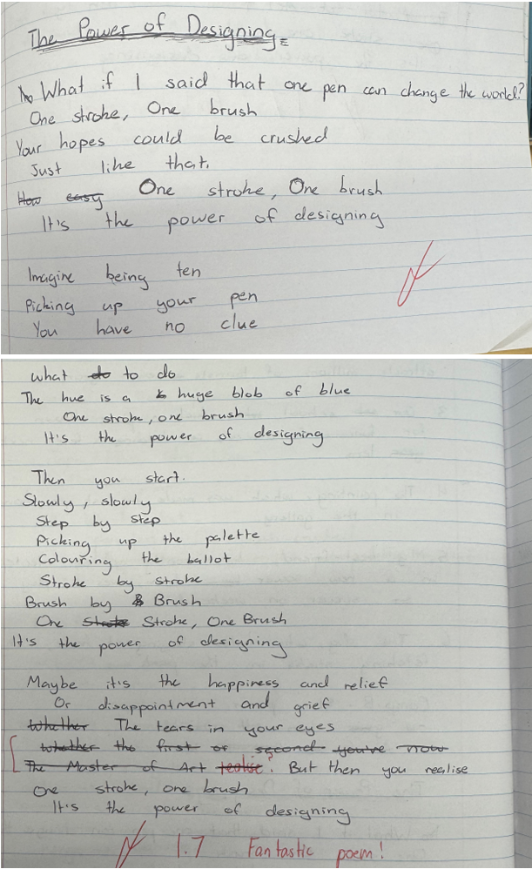 The Power of Designing
What if I said that one pen can change the world?
One stroke, One brush
Your hopes could be crushed
Just like that.
How easy One stroke, One brush
It's the power of designing
Imagine being ten
Picking up your pen
You have no clue
what do to do
The hue is a huge blob of blue
One stroke, one brush
It's the power of designing
Then you start.
Slowly, slowly
Step by step
Picking up the palette
Colouring the ballot
Stroke by stroke
Brush by Brush
One Stroke, One Brush
It's the power of designing
Maybe it's the happiness and relief
Or disappointment and grief
Whether The tears in your eyes
whether the first or second you've now
The Master of Art ? But then you realise
One stroke, one brush
It's the power of designing
1.7 Fantastic poem!